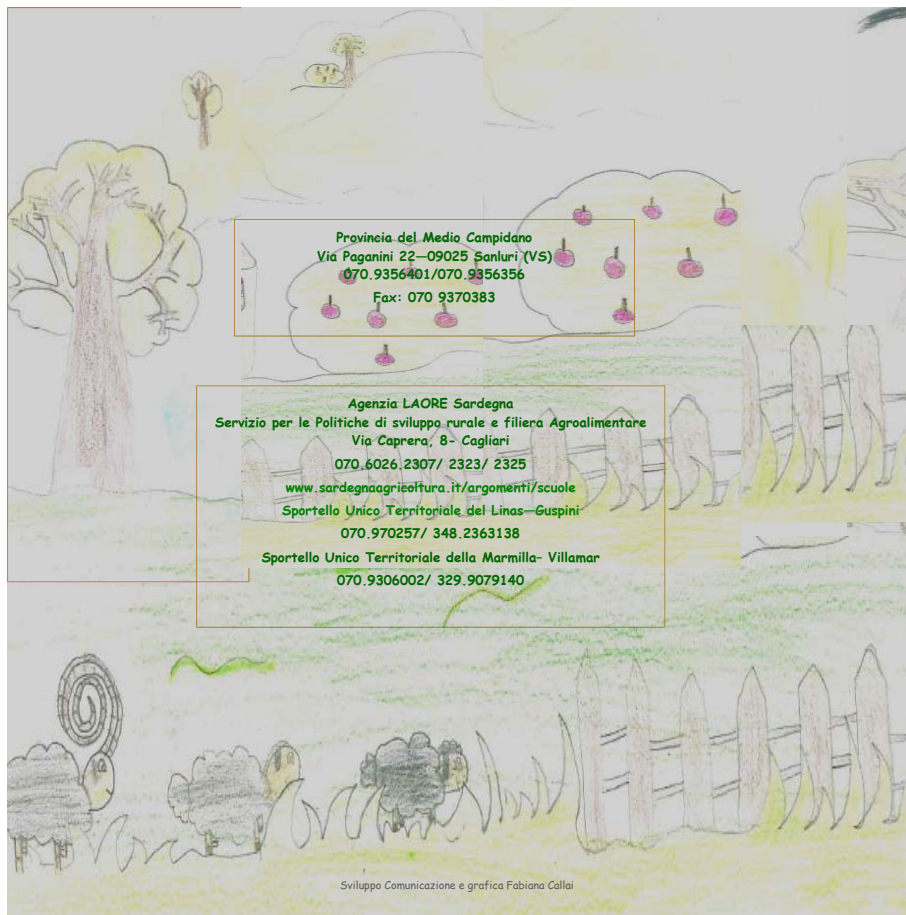 Provincia del Medio Campidano
Via Paganini 22—09025 Sanluri (VS)
070.9356401/070.9356356
Fax: 070 9370383
Agenzia LAORE Sardegna
Servizio per le Politiche di sviluppo rurale e filiera Agroalimentare
Via Caprera, 8- Cagliari
070.6026.2307/ 2323/ 2325
www.sardegnaagricoltura.it/argomenti/scuole
Sportello Unico Territoriale del Linas—Guspini
070.970257/ 348.2363138
Sportello Unico Territoriale della Marmilla- Villamar
070.9306002/ 329.9079140
Sviluppo Comunicazione e grafica Fabiana Callai